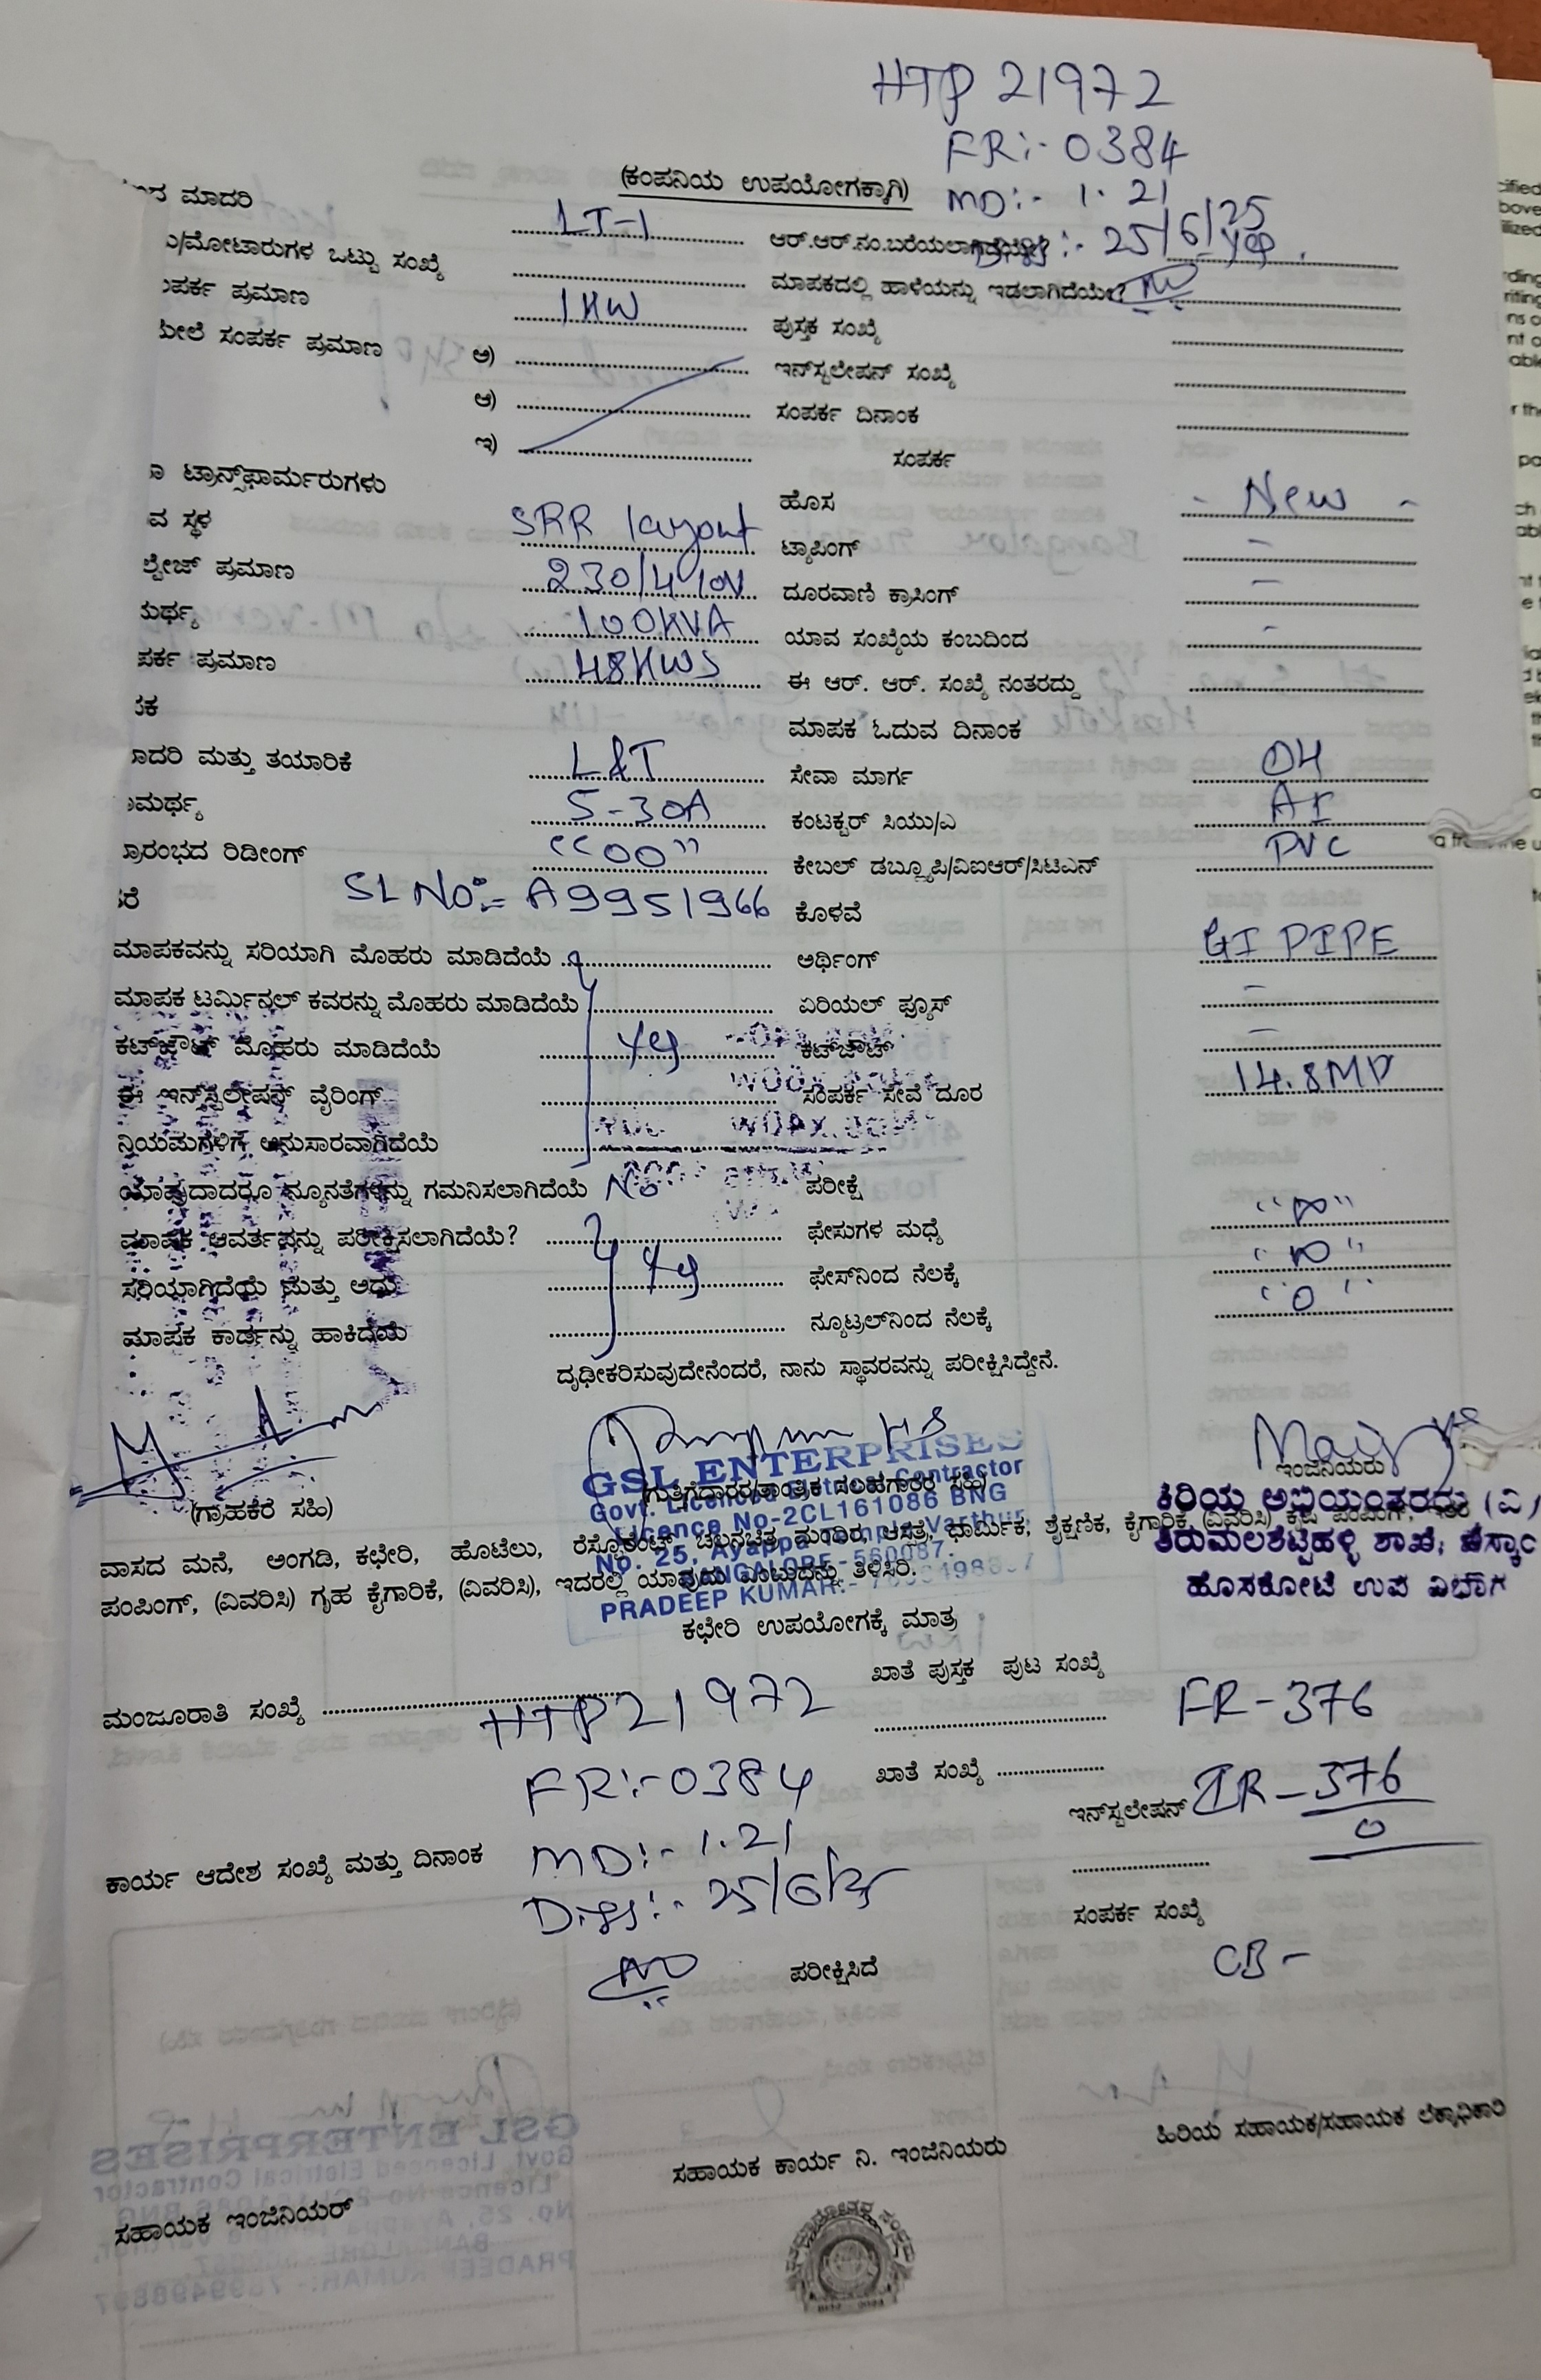 HTP 21972
FR:- 0384
MD:- 1.21
25/6/25
(ಕಂಪನಿಯ ಉಪಯೋಗಕ್ಕಾಗಿ)
ಮಾದರಿ LT-1 ಆರ್.ಆರ್.ನಂ.ಬರೆಯಲಾಗಿದೆಯೇ?
ಒಟ್ಟು ಸಂಖ್ಯೆ ಮಾಪಕದಲ್ಲಿ ಹಾಳೆಯನ್ನು ಇಡಲಾಗಿದೆಯೇ?
ಪ್ರಮಾಣ 1KW ಪುಸ್ತಕ ಸಂಖ್ಯೆ
ಸಂಪರ್ಕ ಪ್ರಮಾಣ ಅ) ಇನ್‌ಸ್ಟಲೇಷನ್ ಸಂಖ್ಯೆ
ಆ) ಸಂಪರ್ಕ ದಿನಾಂಕ
ಇ) ಸಂಪರ್ಕ
ಟ್ರಾನ್ಸ್‌ಫಾರ್ಮರುಗಳು ಹೊಸ - New -
ಸ್ಥಳ SRR layout ಟ್ಯಾಪಿಂಗ್ -
ಪ್ರಮಾಣ 230/440V ದೂರವಾಣಿ ಕ್ರಾಸಿಂಗ್ -
100KVA ಯಾವ ಸಂಖ್ಯೆಯ ಕಂಬದಿಂದ -
ಪ್ರಮಾಣ 48KWS ಈ ಆರ್. ಆರ್. ಸಂಖ್ಯೆ ನಂತರದ್ದು
ಮಾಪಕ ಓದುವ ದಿನಾಂಕ
ಮತ್ತು ತಯಾರಿಕೆ L&T ಸೇವಾ ಮಾರ್ಗ 04
5-30A ಕಂಟಕ್ಟರ್ ಸಿಯು/ಎ
ರಿಡೀಂಗ್ "00" ಕೇಬಲ್ ಡಬ್ಲ್ಯೂಪಿ/ವಿಐಆರ್/ಸಿಟಿಎನ್ PVC
SL No:- A9951966 ಕೊಳವೆ
ಮಾಪಕವನ್ನು ಸರಿಯಾಗಿ ಮೊಹರು ಮಾಡಿದೆಯೆ ಅರ್ಥಿಂಗ್ GI PIPE
ಮಾಪಕ ಟರ್ಮಿನಲ್ ಕವರನ್ನು ಮೊಹರು ಮಾಡಿದೆಯೆ ಏರಿಯಲ್ ಫ್ಯೂಸ್ -
ಕಟ್‌ಔಟ್ ಮೊಹರು ಮಾಡಿದೆಯೆ ಕಟ್‌ಔಟ್ -
ಈ ಇನ್‌ಸ್ಟಲೇಷನ್ ವೈರಿಂಗ್ ಸಂಪರ್ಕ ಸೇವೆ ದೂರ
ನಿಯಮಗಳಿಗೆ ಅನುಸಾರವಾಗಿದೆಯೆ
ಯಾವುದಾದರೂ ನ್ಯೂನತೆಗಳನ್ನು ಗಮನಿಸಲಾಗಿದೆಯೆ No ಪರೀಕ್ಷೆ
ಮಾಪಕ ಆವರ್ತವನ್ನು ಪರೀಕ್ಷಿಸಲಾಗಿದೆಯೆ? ಫೇಸುಗಳ ಮಧ್ಯೆ "∞"
ಸರಿಯಾಗಿದೆಯೆ ಮತ್ತು ಅದು ಫೇಸ್‌ನಿಂದ ನೆಲಕ್ಕೆ "∞"
ಮಾಪಕ ಕಾರ್ಡನ್ನು ಹಾಕಿದೆಯೆ ನ್ಯೂಟ್ರಲ್‌ನಿಂದ ನೆಲಕ್ಕೆ "0"
ದೃಢೀಕರಿಸುವುದೇನೆಂದರೆ, ನಾನು ಸ್ಥಾವರವನ್ನು ಪರೀಕ್ಷಿಸಿದ್ದೇನೆ.
(ಗ್ರಾಹಕರ ಸಹಿ)
(ಗುತ್ತಿಗೆದಾರರ/ತಾಂತ್ರಿಕ ಸಲಹಗಾರರ ಸಹಿ)
ಇಂಜಿನಿಯರು
GSL ENTERPRISES
Govt. Licenced Eletrical Contractor
Licence No-2CL161086 BNG
No. 25, Ayappa Temple Varthur,
BANGALORE-560087.
PRADEEP KUMAR:-
ಕಿರಿಯ ಅಭಿಯಂತರರು (ವಿ)
ತಿರುಮಲಶೆಟ್ಟಿಹಳ್ಳಿ ಶಾಖೆ, ಬೆಸ್ಕಾಂ
ಹೊಸಕೋಟೆ ಉಪ ವಿಭಾಗ
ವಾಸದ ಮನೆ, ಅಂಗಡಿ, ಕಛೇರಿ, ಹೊಟೆಲು, ರೆಸ್ಟೊರೆಂಟ್, ಚಲನಚಿತ್ರ ಮಂದಿರ, ಆಸ್ಪತ್ರೆ, ಧಾರ್ಮಿಕ, ಶೈಕ್ಷಣಿಕ, ಕೈಗಾರಿಕೆ, (ವಿವರಿಸಿ) ಕೃಷಿ ಪಂಪಿಂಗ್, ಇತರೆ
ಪಂಪಿಂಗ್, (ವಿವರಿಸಿ) ಗೃಹ ಕೈಗಾರಿಕೆ, (ವಿವರಿಸಿ), ಇದರಲ್ಲಿ ಯಾವುದು ಎಂಬುದನ್ನು ತಿಳಿಸಿರಿ.
ಕಛೇರಿ ಉಪಯೋಗಕ್ಕೆ ಮಾತ್ರ
ಖಾತೆ ಪುಸ್ತಕ ಪುಟ ಸಂಖ್ಯೆ
ಮಂಜೂರಾತಿ ಸಂಖ್ಯೆ HTP 21972 FR-376
FR:-0384 ಖಾತೆ ಸಂಖ್ಯೆ
ಇನ್‌ಸ್ಟಲೇಷನ್ IR-376
0
ಕಾರ್ಯ ಆದೇಶ ಸಂಖ್ಯೆ ಮತ್ತು ದಿನಾಂಕ MD:- 1.21
25/6/25
ಸಂಪರ್ಕ ಸಂಖ್ಯೆ
ಪರೀಕ್ಷಿಸಿದೆ
CB -
ಹಿರಿಯ ಸಹಾಯಕ/ಸಹಾಯಕ ಲೆಕ್ಕಾಧಿಕಾರಿ
ಸಹಾಯಕ ಕಾರ್ಯ ನಿ. ಇಂಜಿನಿಯರು
ಸಹಾಯಕ ಇಂಜಿನಿಯರ್